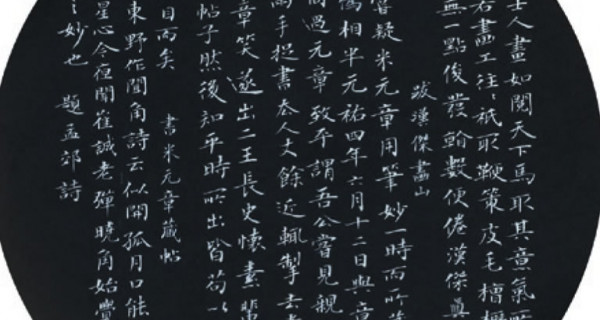 士人畫如閱天下馬取其意氣所
若畫工往往祇取鞭策皮毛槽櫪
無一點俊發翰數便倦漢傑真
跋漢傑畫山
嘗疑米元章用筆妙一時而所藏
僞相半元祐四年六月十二日與章
同過元章致平謂吾公嘗見親
高手捉書去人丈餘近輒掣去
章笑遂出二王長史懷素輩
帖子然後知平時所出皆苟以
目而矣　書米元章藏帖
東野作聞角詩云似開孤月口能
星心今夜聞崔誠老彈曉角始覺
之妙也　題孟郊詩